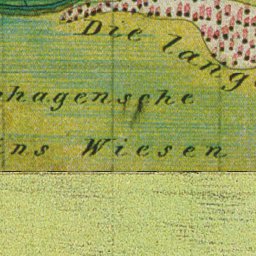 Die lang
hagensche
ins Wiesen